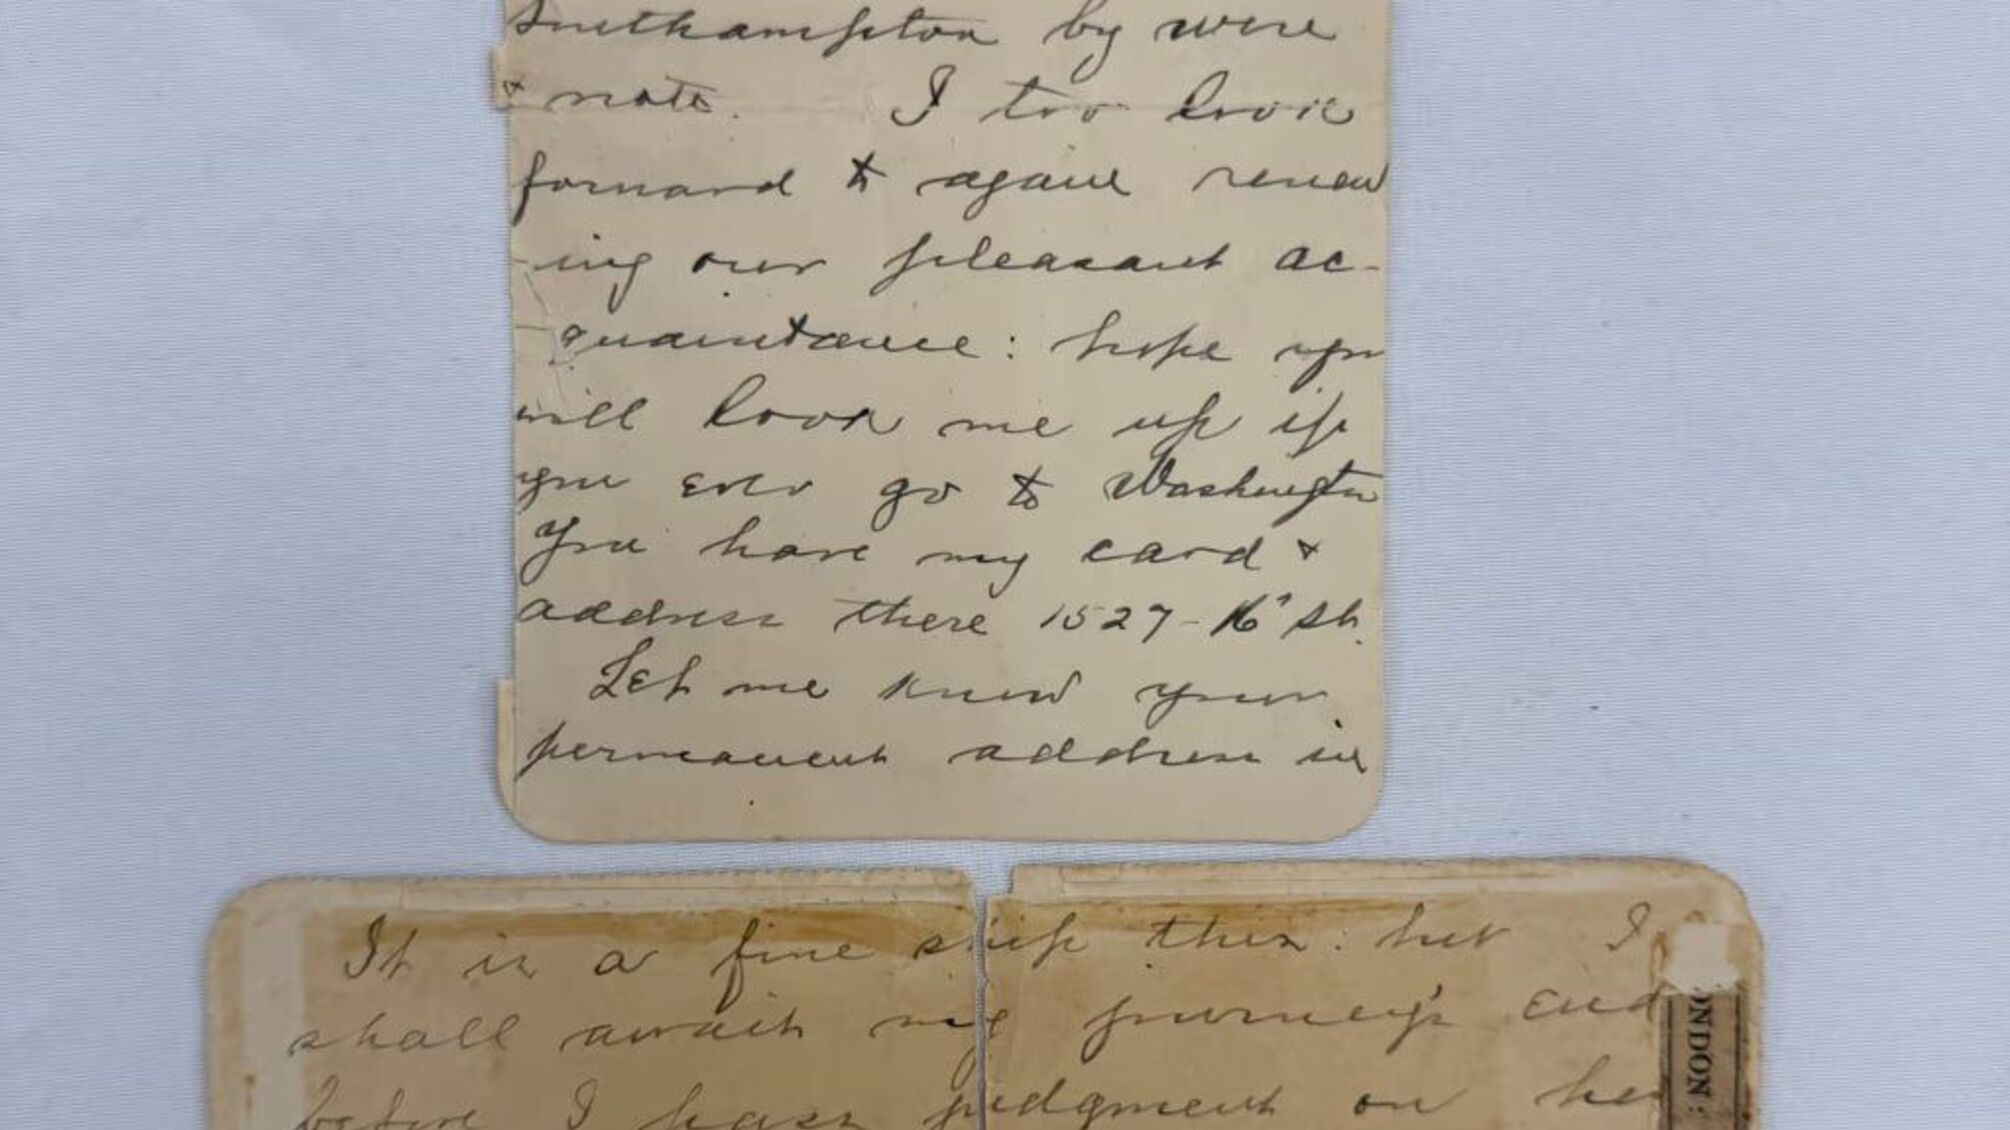 Southampton by wire
& note. I too look
forward to again renew
-ing our pleasant ac-
-quaintance: hope you
will look me up if
you ever go to Washington
You have my card &
address there 1527-16' St.
Let me know your
permanent address in
It is a fine ship this: but I
shall await my journey's end
before I pass judgment on her
ONDON: